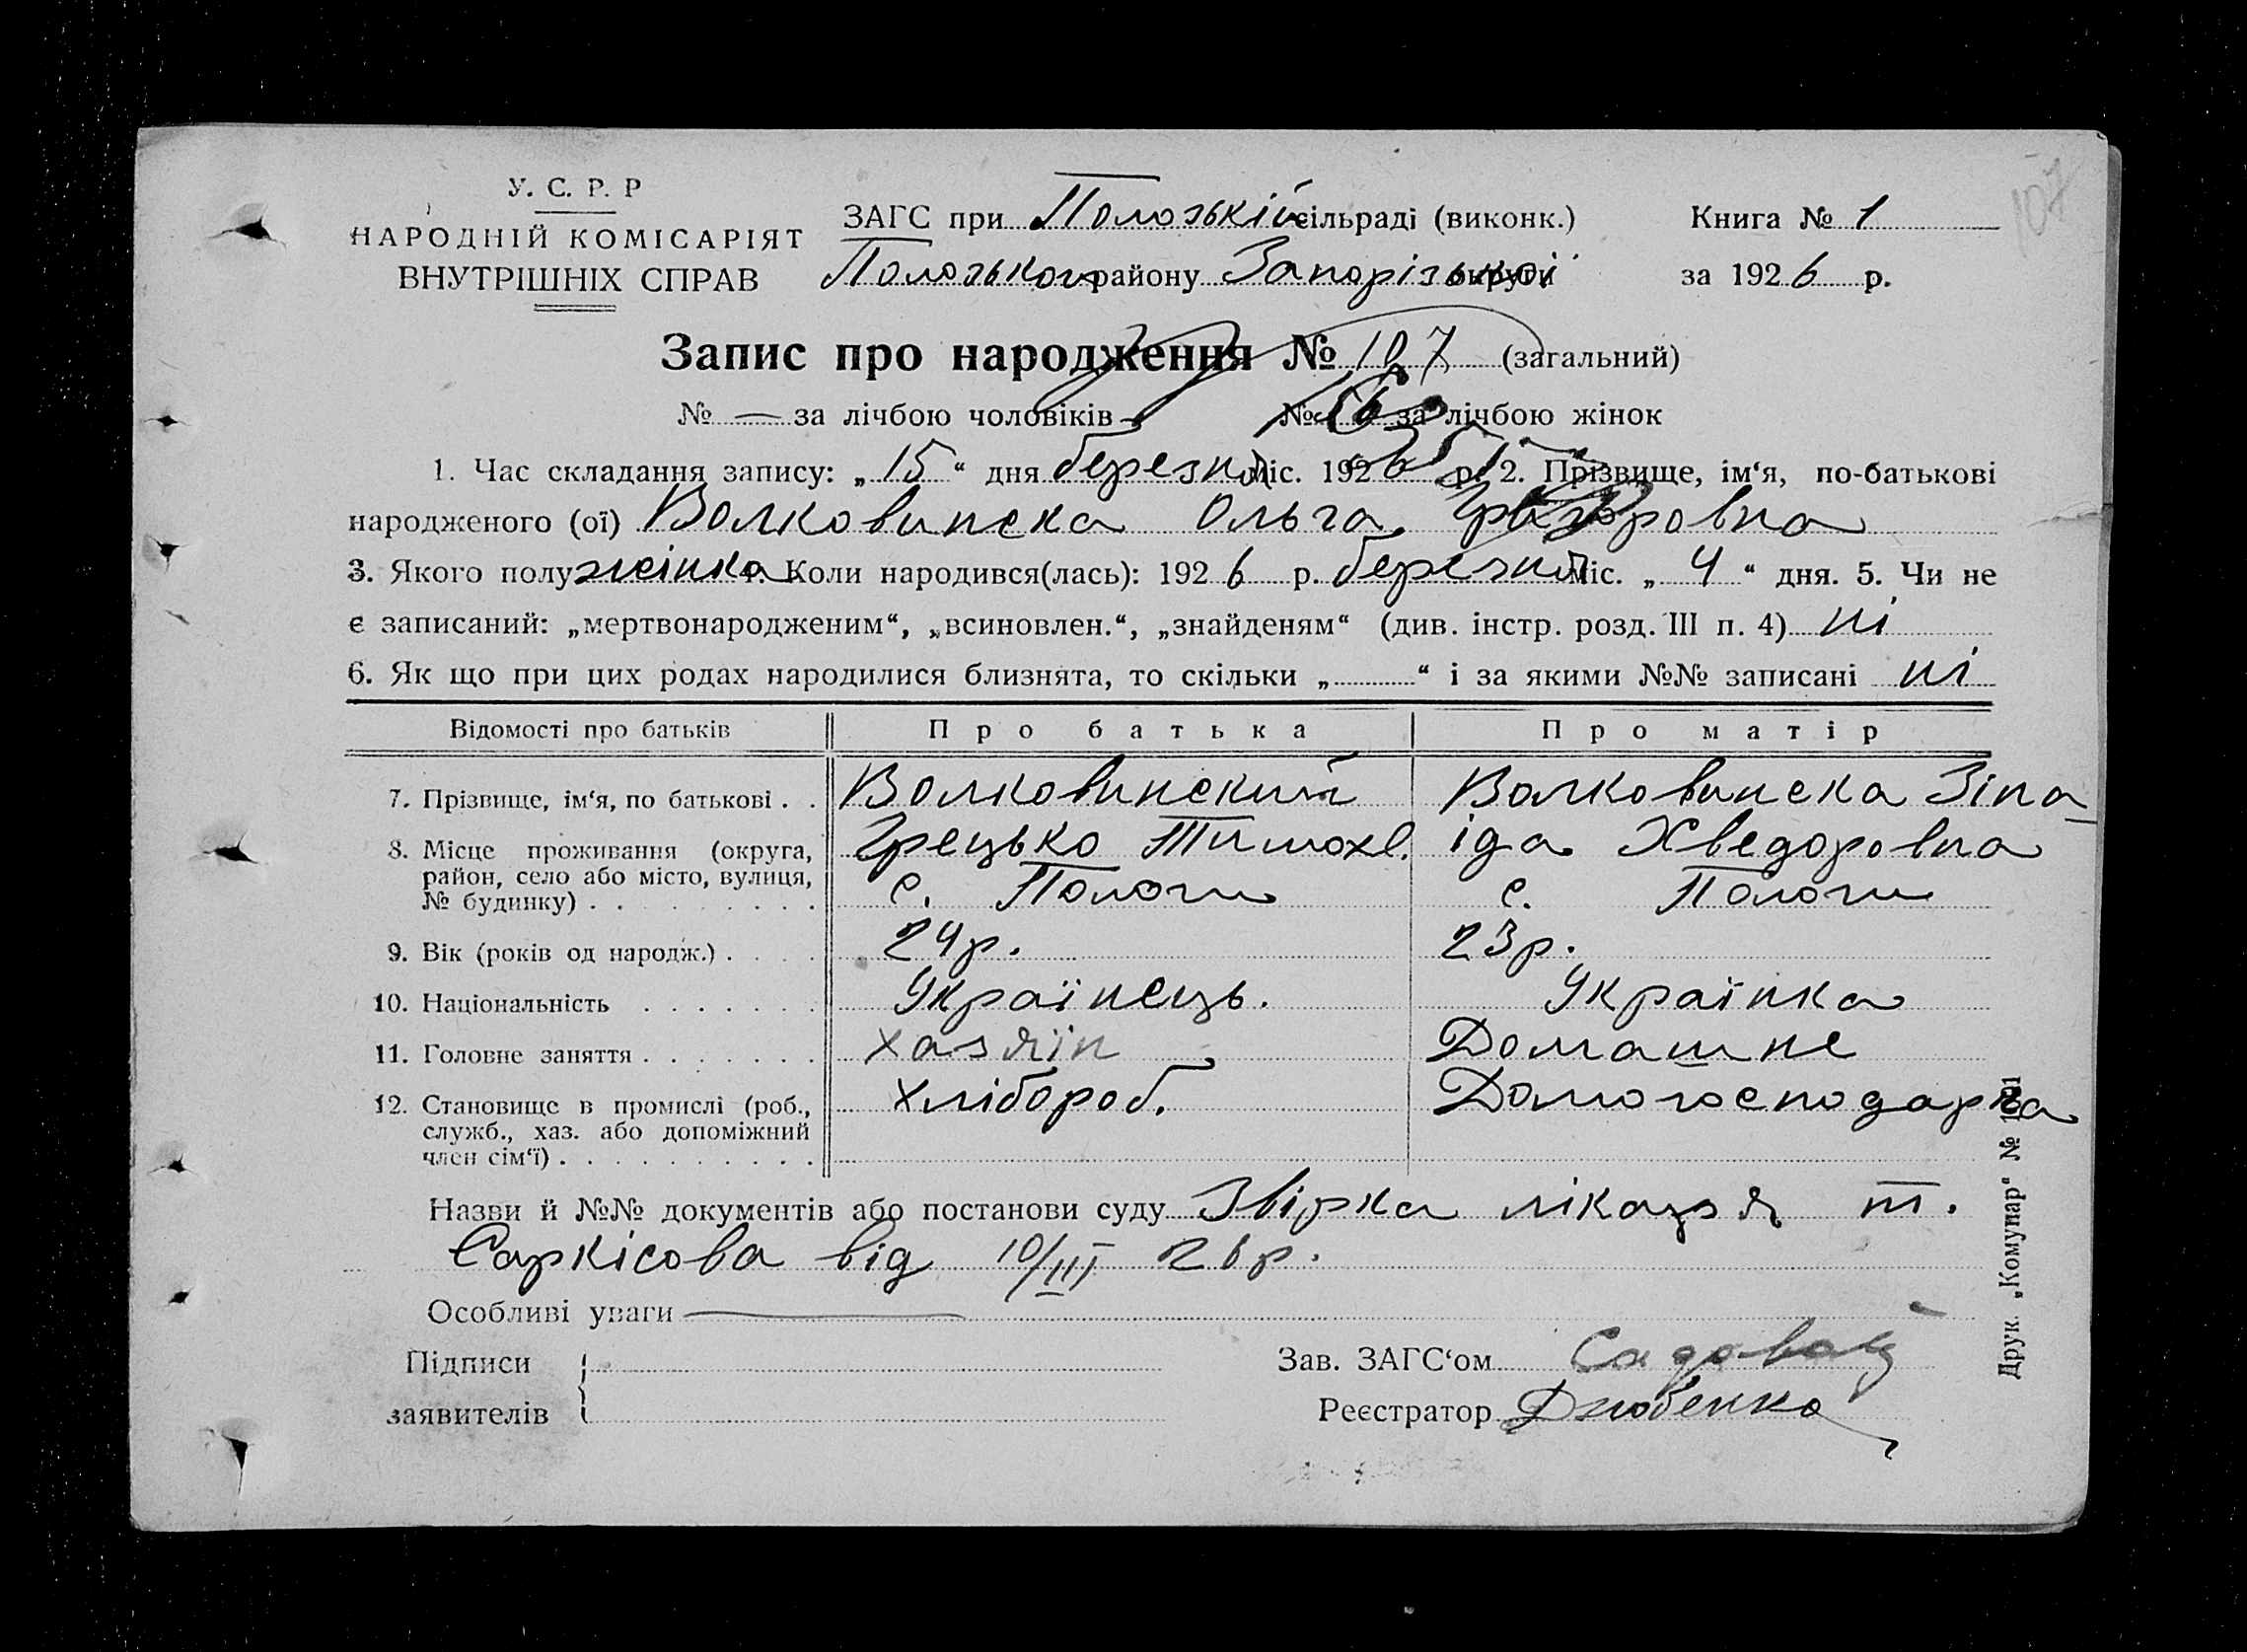 107
У. С. Р. Р
НАРОДНІЙ КОМІСАРІЯТ
ВНУТРІШНІХ СПРАВ
ЗАГС при Пологькій сільраді (виконк.) Книга № 1
Пологького району Запорізької округи за 1926 р.
Запис про народження № 107 (загальний)
№ — за лічбою чоловіків № за лічбою жінок
1. Час складання запису: „ 15 “ дня березня міс. 1926 р. 2. Прізвище, ім‘я, по-батькові
народженого (ої) Волковинска Ольга Григоровна
3. Якого полу жінка 4. Коли народився(лась): 1926 р. березня міс. „ 4 “ дня. 5. Чи не
є записаний: „мертвонародженим“, „всиновлен.“, „знайденям“ (див. інстр. розд. III п. 4) ні
6. Як що при цих родах народилися близнята, то скільки „ “ і за якими №№ записані ні
Відомості про батьків Про батька Про матір
7. Прізвище, ім‘я, по батькові . . Волковинский Волковинска Зіна-
Грецько Тимохв. іда Хведоровна
8. Місце проживання (округа,
район, село або місто, вулиця,
№ будинку) . . . . . . . . . с. Пологи с. Пологи
9. Вік (років од народж.) . . . . 24р. 23р.
10. Національність . . . . . . . Українець. Українка
11. Головне заняття . . . . . . . хазяїн Домашнє
12. Становище в промислі (роб.,
служб., хаз. або допоміжний
член сім‘ї) . . . . . . . . . . хлібороб. Домогосподарка
Назви й №№ документів або постанови суду Звірка лікаря т.
Саркісова від 10/III 26р.
Особливі уваги —
Підписи
заявителів
Зав. ЗАГС‘ом Садовий
Реєстратор Дзюбенко
Друк. „Комунар“ №